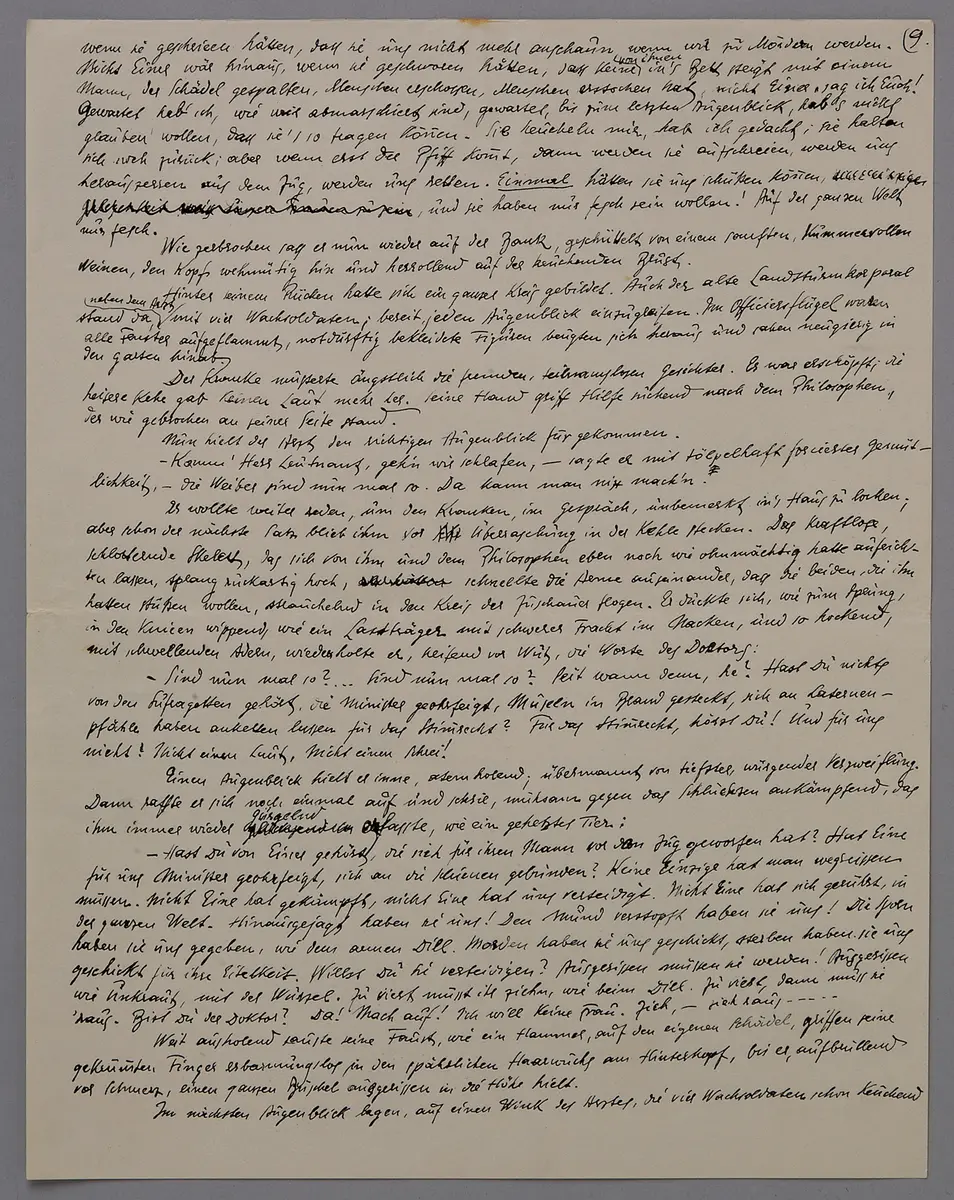 9.
wenn sie geschrieen hätten, dass sie uns nicht mehr anschaun, wenn wir zu Mördern werden.
von ihnen
Nicht Eine wär hinaus, wenn sie geschworen hätten, dass keine in's Bett steigt mit einem
Mann, der Schädel gespalten, Menschen erschossen, Menschen erstochen hat, nicht Eine, sag ich Euch!
Gewartet hab ich, wie wir abmarschiert sind, gewartet, bis zum letzten Augenblick, hab's nicht
glauben wollen, dass sie's so tragen können. Sie heucheln nur, hab ich gedacht; sie halten
sich noch zurück; aber wenn erst der Pfiff kommt, dann werden sie aufschreien, werden uns
herauszerren aus dem Zug, werden uns retten. Einmal hätten sie uns schützen können,
und sie haben nur fesch sein wollen! Auf der ganzen Welt
nur fesch.
Wie zerbrochen sass er nun wieder auf der Bank, geschüttelt von einem sanften, kummervollen
Weinen, den Kopf wehmütig hin und herrollend auf der keuchenden Brust.
Hinter seinem Rücken hatte sich ein ganzer Kreis gebildet. Auch der alte Landsturmkorporal
neben dem Arzt
stand da, mit vier Wachsoldaten, bereit jeden Augenblick einzugreifen. Im Officiersflügel waren
alle Fenster aufgeflammt, notdürftig bekleidete Figuren beugten sich heraus und sahen neugierig in
den Garten hinab.
Der Kranke musterte ängstlich die fremden, teilnamslosen Gesichter. Er war erschöpft; die
heisere Kehle gab keinen Laut mehr her. Seine Hand griff Hilfe suchend nach dem Philosophen,
der wie gebrochen an seiner Seite stand.
Nun hielt der Arzt den richtigen Augenblick für gekommen.
– Komm' Herr Leutnant, geh'n wir schlafen, – sagte er mit tölpelhaft forcierter Gemüt-
lichkeit, – die Weiber sind nun mal so. Da kann man nix mach'n.
Er wollte weiter reden, um den Kranken, im Gespräch, unbemerkt in's Haus zu locken;
aber schon der nächste Satz blieb ihm vor Überraschung in der Kehle stecken. Das kraftlose,
schlotternde Skelett, das sich von ihm und dem Philosophen eben noch wie ohnmächtig hatte aufrich-
ten lassen, sprang ruckartig hoch, schnellte die Arme auseinander, dass die beiden, die ihn
hatten stützen wollen, strauchelnd in den Kreis der Zuschauer flogen. Er duckte sich, wie zum Sprung,
in den Knieen wippend, wie ein Lastträger mit schwerer Fracht im Nacken, und so hockend,
mit schwellenden Adern, wiederholte er, keifend vor Wut, die Worte des Doktors:
– Sind nun mal so?... Sind nun mal so? Seit wann denn, he? Hast Du nichts
von den Sufragetten gehört, die Minister geohrfeigt, Museen in Brand gesteckt, sich an Laternen-
pfähle haben anketten lassen für das Stimrecht? Für das Stimrecht, hörst Du! Und für uns
nicht! Nicht einen Laut, Nicht einen Schrei!
Einen Augenblick hielt er inne, atemholend, übermannt von tiefster, würgender Verzweiflung.
Dann raffte er sich noch einmal auf und schrie, mühsam gegen das Schluchzen ankämpfend, das
gurgelnd
ihn immer wieder erfasste, wie ein gehetztes Tier:
– Hast Du von Einer gehört, die sich für ihren Mann vor den Zug geworfen hat? Hat Eine
für uns Minister geohrfeigt, sich an die Schienen gebunden? Keine Einzige hat man wegreissen
müssen. Nicht Eine hat gekämpft, nicht Eine hat uns verteidigt. Nicht Eine hat sich gerührt, in
der ganzen Welt. Hinausgejagt haben sie uns! Den Mund verstopft haben sie uns! Die Sporn
haben sie uns gegeben, wie dem armen Dill. Morden haben sie uns geschickt, sterben haben sie uns
geschickt für ihre Eitelkeit. Willst Du sie verteidigen? Ausgerissen müssen sie werden! Ausgerissen
wie Unkraut, mit der Wurzel. Zu viert müsst ihr ziehn, wie beim Dill. Zu viert, dann muss sie
'raus. Bist Du der Doktor? Da! Mach auf! Ich will keine Frau. Zieh, – zieh raus -----
Weit ausholend sauste seine Faust, wie ein Hammer, auf den eigenen Schädel, griffen seine
gekrümmten Finger erbarmungslos in den spährlichen Haarwuchs am Hinterkopf, bis er, aufbrüllend
vor Schmerz, einen ganzen Büschel ausgerissen in die Höhe hielt.
Im nächsten Augenblick lagen, auf einen Wink des Arztes, die vier Wachsoldaten schon keuchend